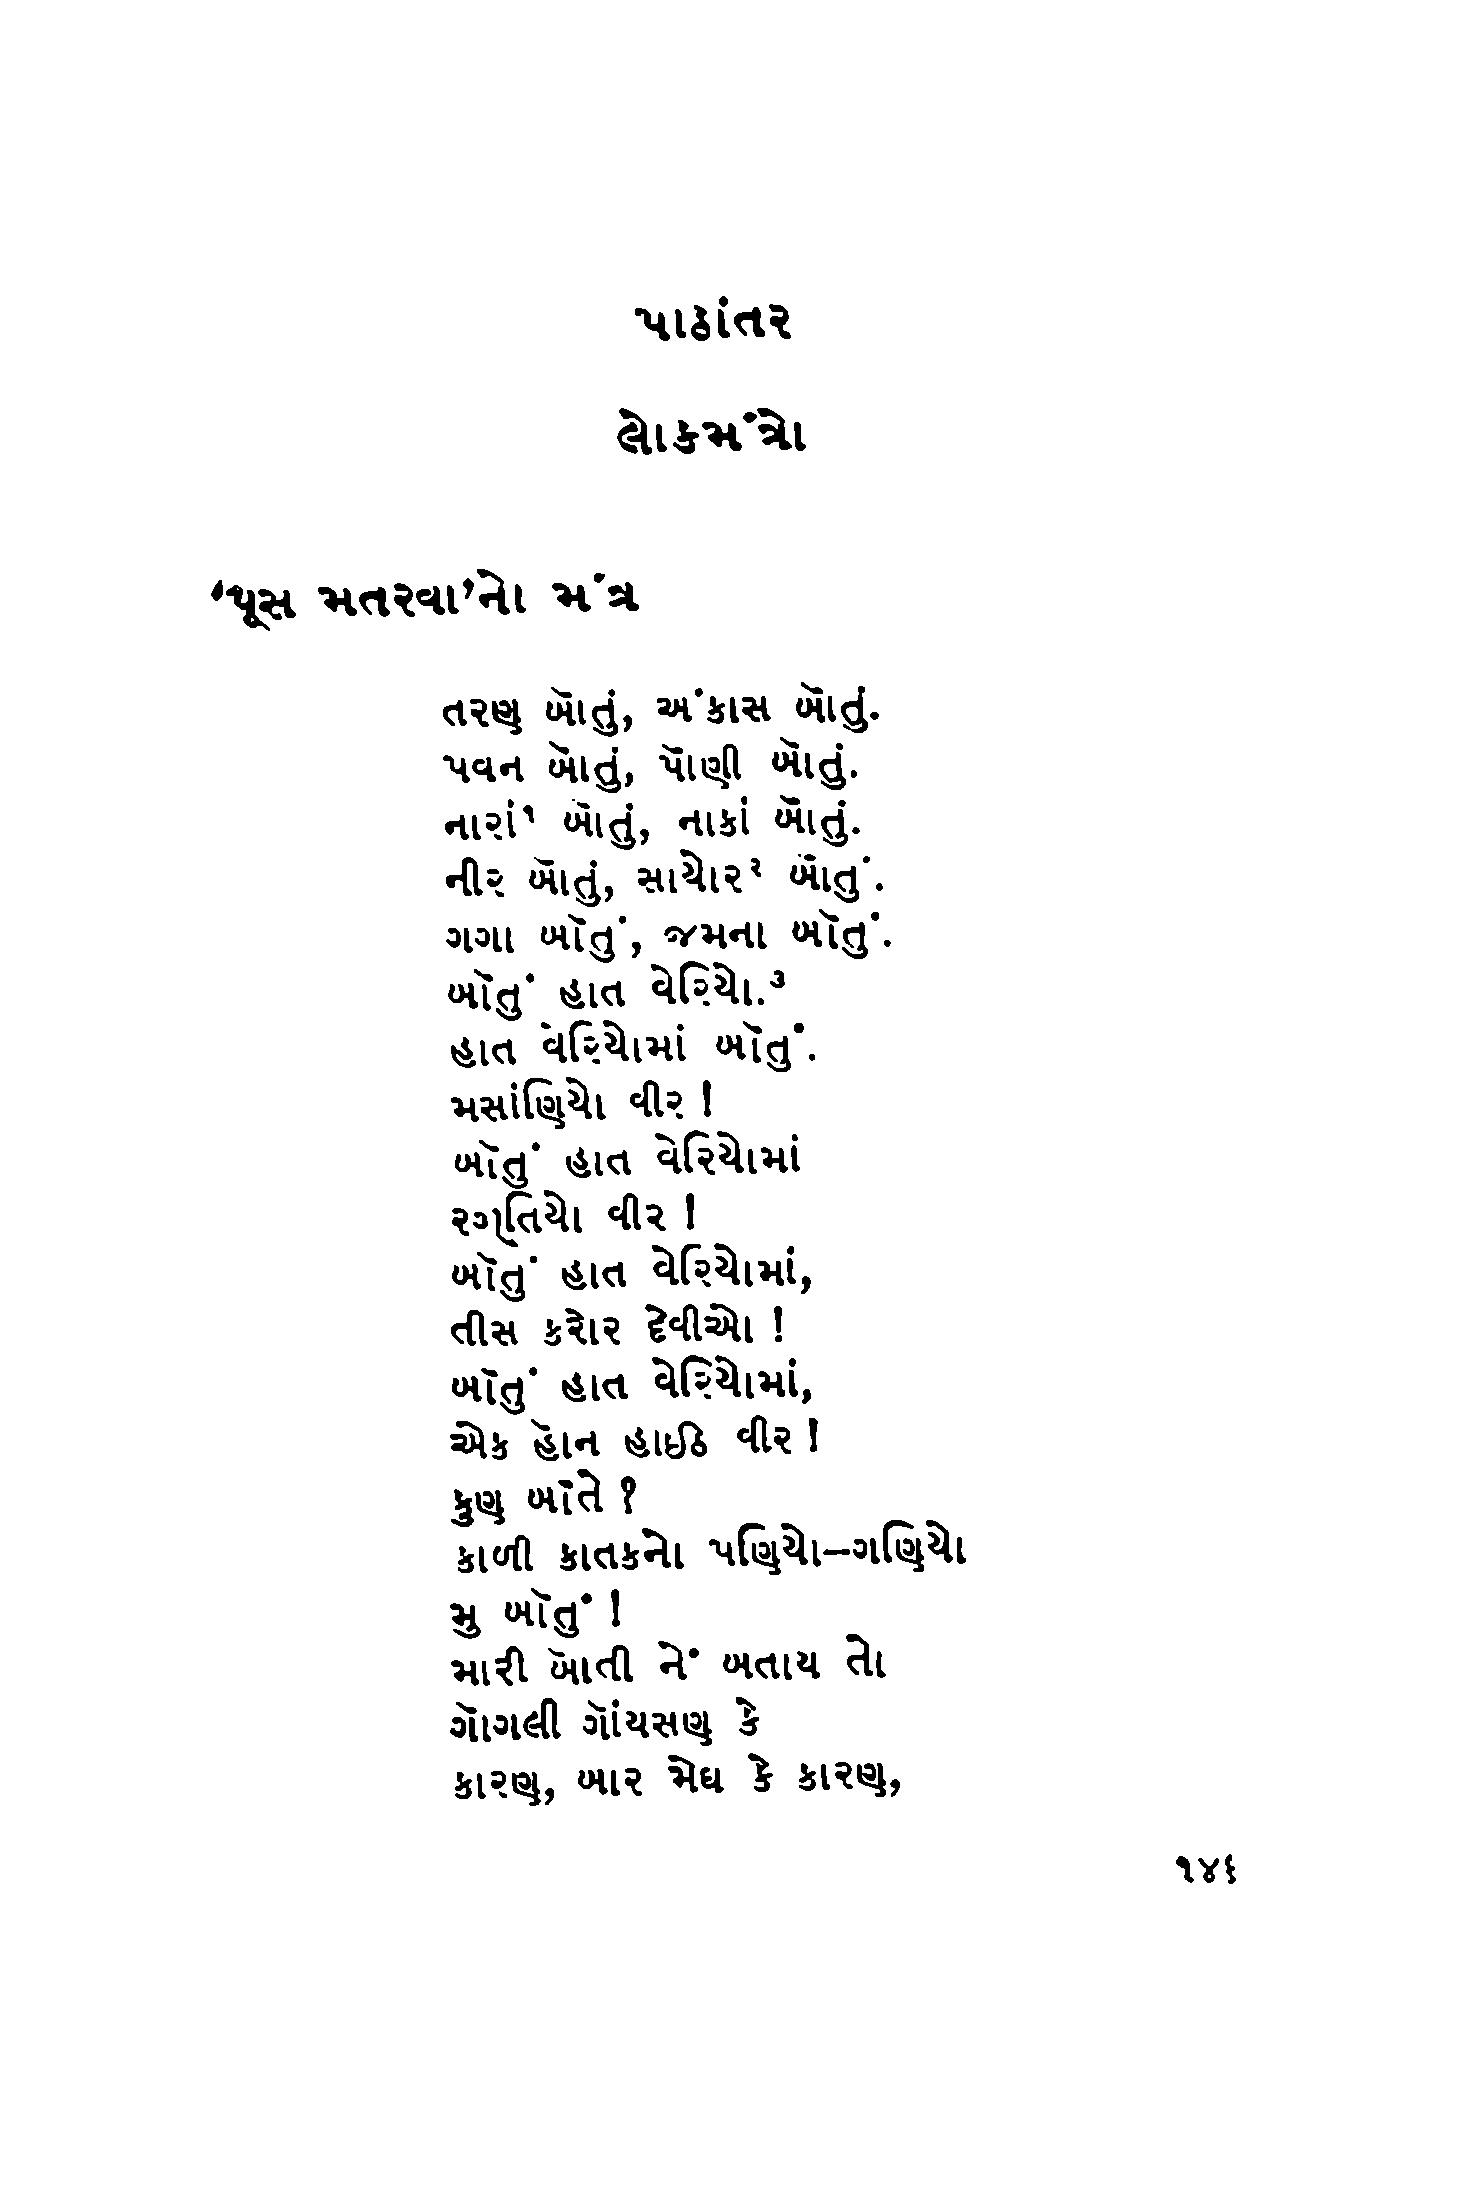 પાઠાંતર
લોકમંત્રો
'પૂસ મતરવા'નો મંત્ર
તરણ બૉતું, અંકાસ બૉતું.
પવન બૉતું, પૉણી બૉતું.
નારાં૧ બૉતું, નાકાં બૉતું.
નીર બૉતું, સાયોર૨ બૉતું.
ગગા બૉતું, જમના બૉતું.
બૉતું હાત વેરિયો.૩
હાત વેરિયોમાં બૉતું.
મસાંણિયો વીર !
બૉતું હાત વેરિયોમાં
રગ્તિયો વીર !
બૉતું હાત વેરિયોમાં,
તીસ કરોર દેવીઓ !
બૉતું હાત વેરિયોમાં,
એક હૉન હાઈઠ વીર !
કુણ બૉતે ?
કાળી કાતકનો પણિયો–ગણિયો
મુ બૉતું !
મારી બૉતી નેં બતાય તો
ગૉગલી ગૉંયસણ કે
કારણ, બાર મેઘ કે કારણ,
૧૪૬